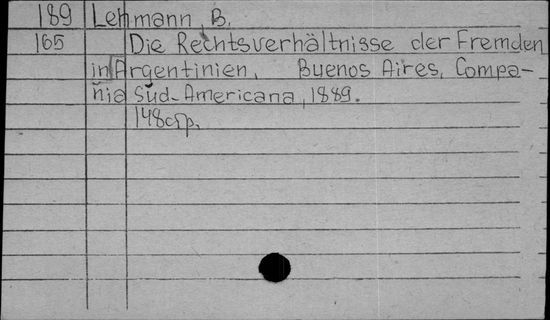 189 Lehmann, B.
165 Die Rechtsverhältnisse der Fremden
in Argentinien. Buenos Aires, Compa-
ñia Sud-Americana, 1889.
148